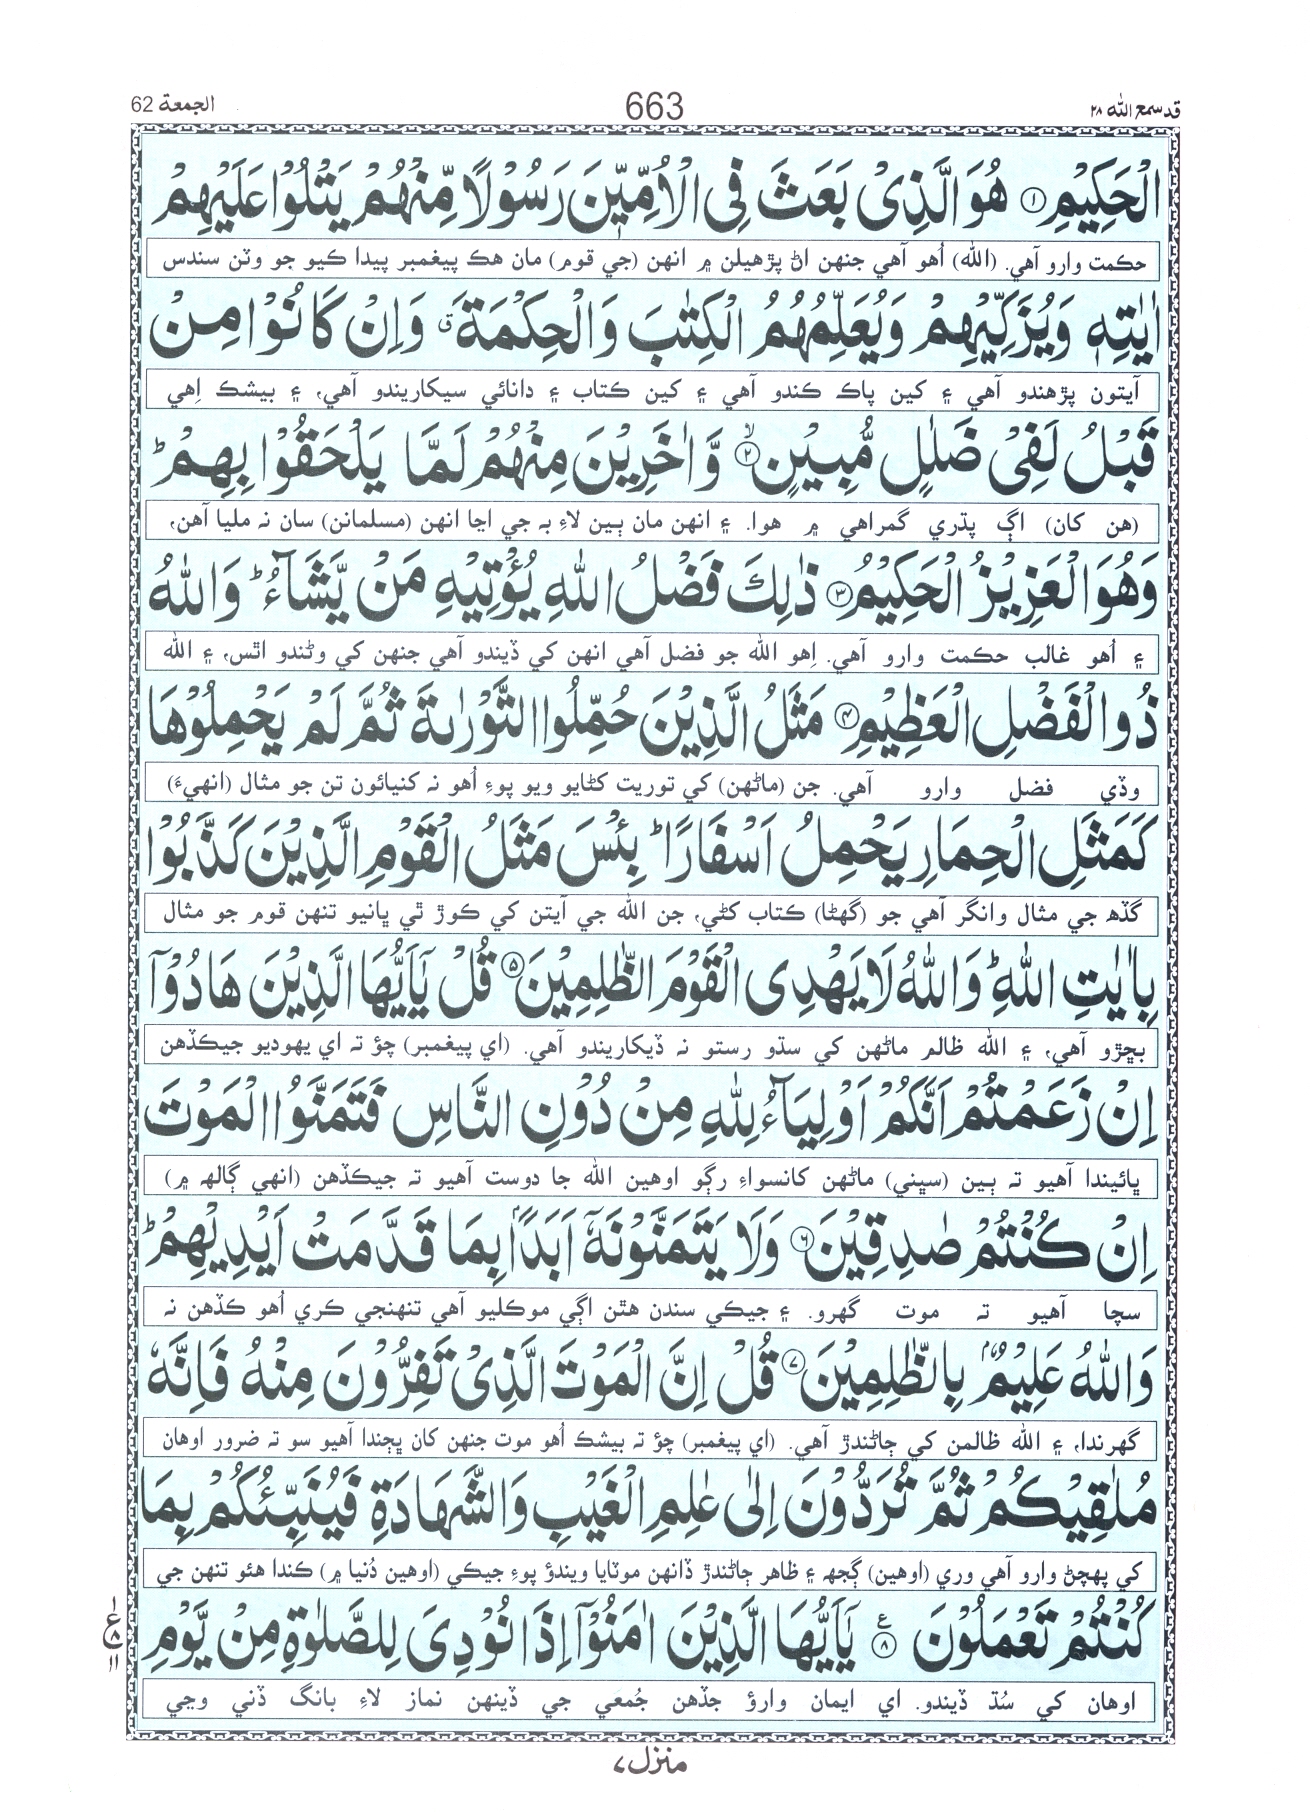 قد سمع الله ٢٨
663
الجمعة 62
الْحَكِيْمِ ۝١ هُوَ الَّذِىْ بَعَثَ فِى الْاُمِّيّٖنَ رَسُوْلًا مِّنْهُمْ يَتْلُوْا عَلَيْهِمْ
حڪمت وارو آهي. (الله) اُهو آهي جنهن اڻ پڙهيلن ۾ انهن (جي قوم) مان هڪ پيغمبر پيدا ڪيو جو وٽن سندس
اٰيٰتِهٖ وَيُزَكِّيْهِمْ وَيُعَلِّمُهُمُ الْكِتٰبَ وَالْحِكْمَةَ ۗ وَاِنْ كَانُوْا مِنْ
آيتون پڙهندو آهي ۽ کين پاڪ ڪندو آهي ۽ کين ڪتاب ۽ دانائي سيکاريندو آهي، ۽ بيشڪ اِهي
قَبْلُ لَفِىْ ضَلٰلٍ مُّبِيْنٍ ۙ۝٢ وَّاٰخَرِيْنَ مِنْهُمْ لَمَّا يَلْحَقُوْا بِهِمْ ؕ
(هن کان) اڳ پڌري گمراهي ۾ هوا. ۽ انهن مان ٻين لاءِ به جي اڃا انهن (مسلمانن) سان نه مليا آهن،
وَهُوَ الْعَزِيْزُ الْحَكِيْمُ ۝٣ ذٰلِكَ فَضْلُ اللهِ يُؤْتِيْهِ مَنْ يَّشَآءُ ؕ وَاللهُ
۽ اُهو غالب حڪمت وارو آهي. اِهو الله جو فضل آهي انهن کي ڏيندو آهي جنهن کي وڻندو اٿس، ۽ الله
ذُو الْفَضْلِ الْعَظِيْمِ ۝٤ مَثَلُ الَّذِيْنَ حُمِّلُوا التَّوْرٰىةَ ثُمَّ لَمْ يَحْمِلُوْهَا
وڏي فضل وارو آهي. جن (ماڻهن) کي توريت کڻايو ويو پوءِ اُهو نه کنيائون تن جو مثال (انهيءَ)
كَمَثَلِ الْحِمَارِ يَحْمِلُ اَسْفَارًا ؕ بِئْسَ مَثَلُ الْقَوْمِ الَّذِيْنَ كَذَّبُوْا
گڏهه جي مثال وانگر آهي جو (گهڻا) ڪتاب کڻي، جن الله جي آيتن کي ڪوڙ ٿي ڀانيو تنهن قوم جو مثال
بِاٰيٰتِ اللهِ ؕ وَاللهُ لَا يَهْدِى الْقَوْمَ الظّٰلِمِيْنَ ۝٥ قُلْ يٰٓاَيُّهَا الَّذِيْنَ هَادُوْٓا
بڇڙو آهي، ۽ الله ظالم ماڻهن کي سڌو رستو نه ڏيکاريندو آهي. (اي پيغمبر) چؤ ته اي يهوديو جيڪڏهن
اِنْ زَعَمْتُمْ اَنَّكُمْ اَوْلِيَآءُ لِلّٰهِ مِنْ دُوْنِ النَّاسِ فَتَمَنَّوُا الْمَوْتَ
ڀائيندا آهيو ته ٻين (سڀني) ماڻهن کانسواءِ رڳو اوهين الله جا دوست آهيو ته جيڪڏهن (انهي ڳالهه ۾)
اِنْ كُنْتُمْ صٰدِقِيْنَ ۝٦ وَلَا يَتَمَنَّوْنَهٗٓ اَبَدًۢا بِمَا قَدَّمَتْ اَيْدِيْهِمْ ؕ
سچا آهيو ته موت گهرو. ۽ جيڪي سندن هٿن اڳي موڪليو آهي تنهنجي ڪري اُهو ڪڏهن نه
وَاللهُ عَلِيْمٌۢ بِالظّٰلِمِيْنَ ۝٧ قُلْ اِنَّ الْمَوْتَ الَّذِىْ تَفِرُّوْنَ مِنْهُ فَاِنَّهٗ
گهرندا، ۽ الله ظالمن کي ڄاڻندڙ آهي. (اي پيغمبر) چؤ ته بيشڪ اُهو موت جنهن کان ڀڄندا آهيو سو ته ضرور اوهان
مُلٰقِيْكُمْ ثُمَّ تُرَدُّوْنَ اِلٰى عٰلِمِ الْغَيْبِ وَالشَّهَادَةِ فَيُنَبِّئُكُمْ بِمَا
کي پهچڻ وارو آهي وري (اوهين) ڳجهه ۽ ظاهر ڄاڻندڙ ڏانهن موٽايا ويندؤ پوءِ جيڪي (اوهين دُنيا ۾) ڪندا هئو تنهن جي
كُنْتُمْ تَعْمَلُوْنَ ۝٨ ع يٰٓاَيُّهَا الَّذِيْنَ اٰمَنُوْٓا اِذَا نُوْدِىَ لِلصَّلٰوةِ مِنْ يَّوْمِ
١ ع ٨ ١١
اوهان کي سُڌ ڏيندو. اي ايمان وارؤ جڏهن جُمعي جي ڏينهن نماز لاءِ بانگ ڏني وڃي
منزل ٧